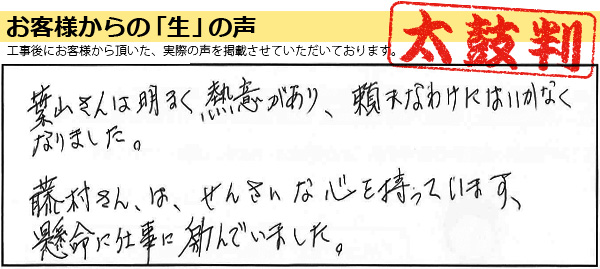 お客様からの「生」の声
工事後にお客様から頂いた、実際の声を掲載させていただいております。
太鼓判
葉山さんは明るく熱意があり、頼まなわけにはいかなく
なりました。
藤村さん、は、せんさいな心を持っています、
懸命に仕事に励んでいました。